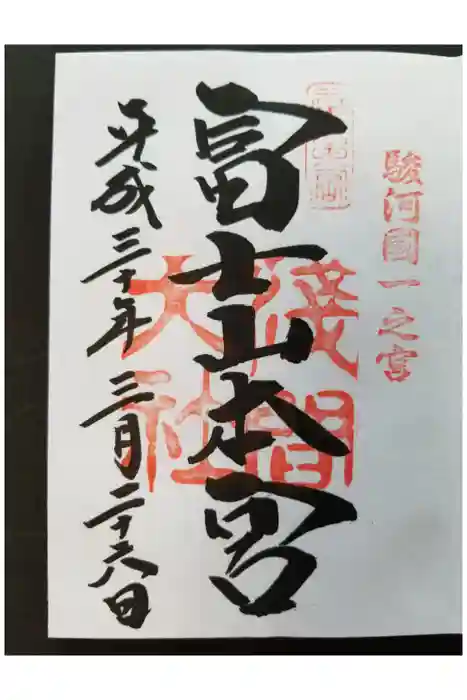 駿河國一之宮
富士山本宮
淺間
大社
平成三十年三月二十六日